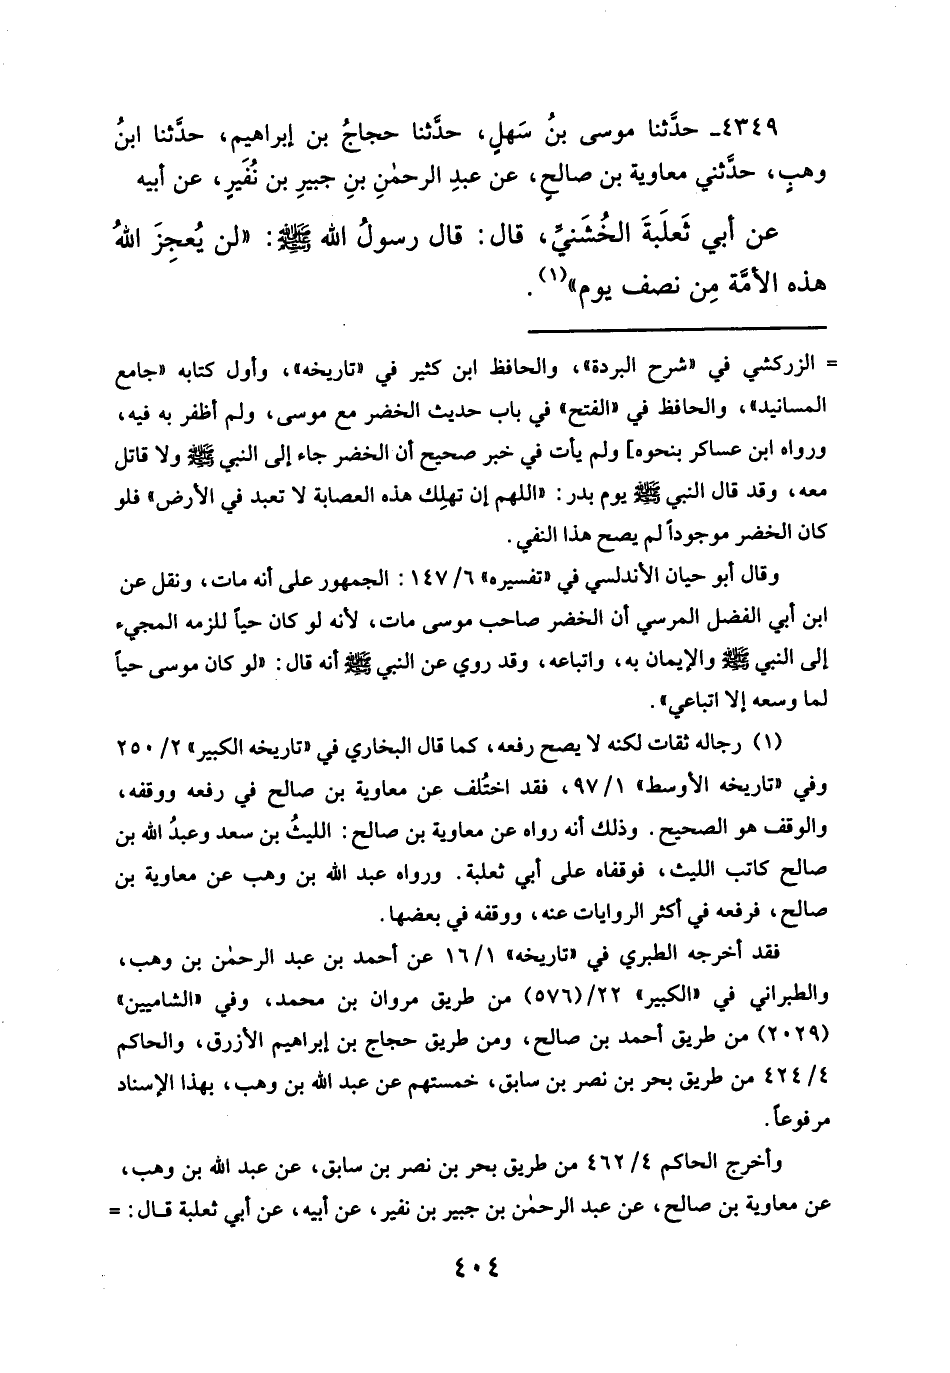 ٤٣٤٩ـ حدَّثنا موسى بنُ سَهلٍ، حدَّثنا حجاجُ بن إبراهيم، حدَّثنا ابنُ
وهبٍ، حدَّثني معاوية بن صالحٍ، عن عبدِ الرحمٰنِ بنِ جبيرِ بن نُفَيرٍ، عن أبيه
عن أبي ثَعلَبةَ الخُشَنيِّ، قال: قال رسولُ الله ﷺ: «لن يُعجِزَ اللهُ
هذه الأمَّة مِن نصف يوم»(١).
= الزركشي في «شرح البردة»، والحافظ ابن كثير في «تاريخه»، وأول كتابه «جامع
المسانيد»، والحافظ في «الفتح» في باب حديث الخضر مع موسى، ولم أظفر به فيه،
ورواه ابن عساكر بنحوه] ولم يأت في خبر صحيح أن الخضر جاء إلى النبي ﷺ ولا قاتل
معه، وقد قال النبي ﷺ يوم بدر: «اللهم إن تهلِك هذه العصابة لا تعبد في الأرض» فلو
كان الخضر موجوداً لم يصح هذا النفي.
وقال أبو حيان الأندلسي في «تفسيره» ١٤٧/٦: الجمهور على أنه مات، ونقل عن
ابن أبي الفضل المرسي أن الخضر صاحب موسى مات، لأنه لو كان حياً للزمه المجيء
إلى النبي ﷺ والإيمان به، واتباعه، وقد روي عن النبي ﷺ أنه قال: «لو كان موسى حياً
لما وسعه إلا اتباعي».
(١) رجاله ثقات لكنه لا يصح رفعه، كما قال البخاري في «تاريخه الكبير» ٢٥٠/٢
وفي «تاريخه الأوسط» ٩٧/١، فقد اختُلف عن معاوية بن صالح في رفعه ووقفه،
والوقف هو الصحيح. وذلك أنه رواه عن معاوية بن صالح: الليثُ بن سعد وعبدُ الله بن
صالح كاتب الليث، فوقفاه على أبي ثعلبة. ورواه عبد الله بن وهب عن معاوية بن
صالح، فرفعه في أكثر الروايات عنه، ووقفه في بعضها.
فقد أخرجه الطبري في «تاريخه» ١٦/١ عن أحمد بن عبد الرحمٰن بن وهب،
والطبراني في «الكبير» ٢٢/(٥٧٦) من طريق مروان بن محمد، وفي «الشاميين»
(٢٠٢٩) من طريق أحمد بن صالح، ومن طريق حجاج بن إبراهيم الأزرق، والحاكم
٤٢٤/٤ من طريق بحر بن نصر بن سابق، خمستهم عن عبد الله بن وهب، بهذا الإسناد
مرفوعاً.
وأخرج الحاكم ٤٦٢/٤ من طريق بحر بن نصر بن سابق، عن عبد الله بن وهب،
عن معاوية بن صالح، عن عبد الرحمٰن بن جبير بن نفير، عن أبيه، عن أبي ثعلبة قال: =
٤٠٤